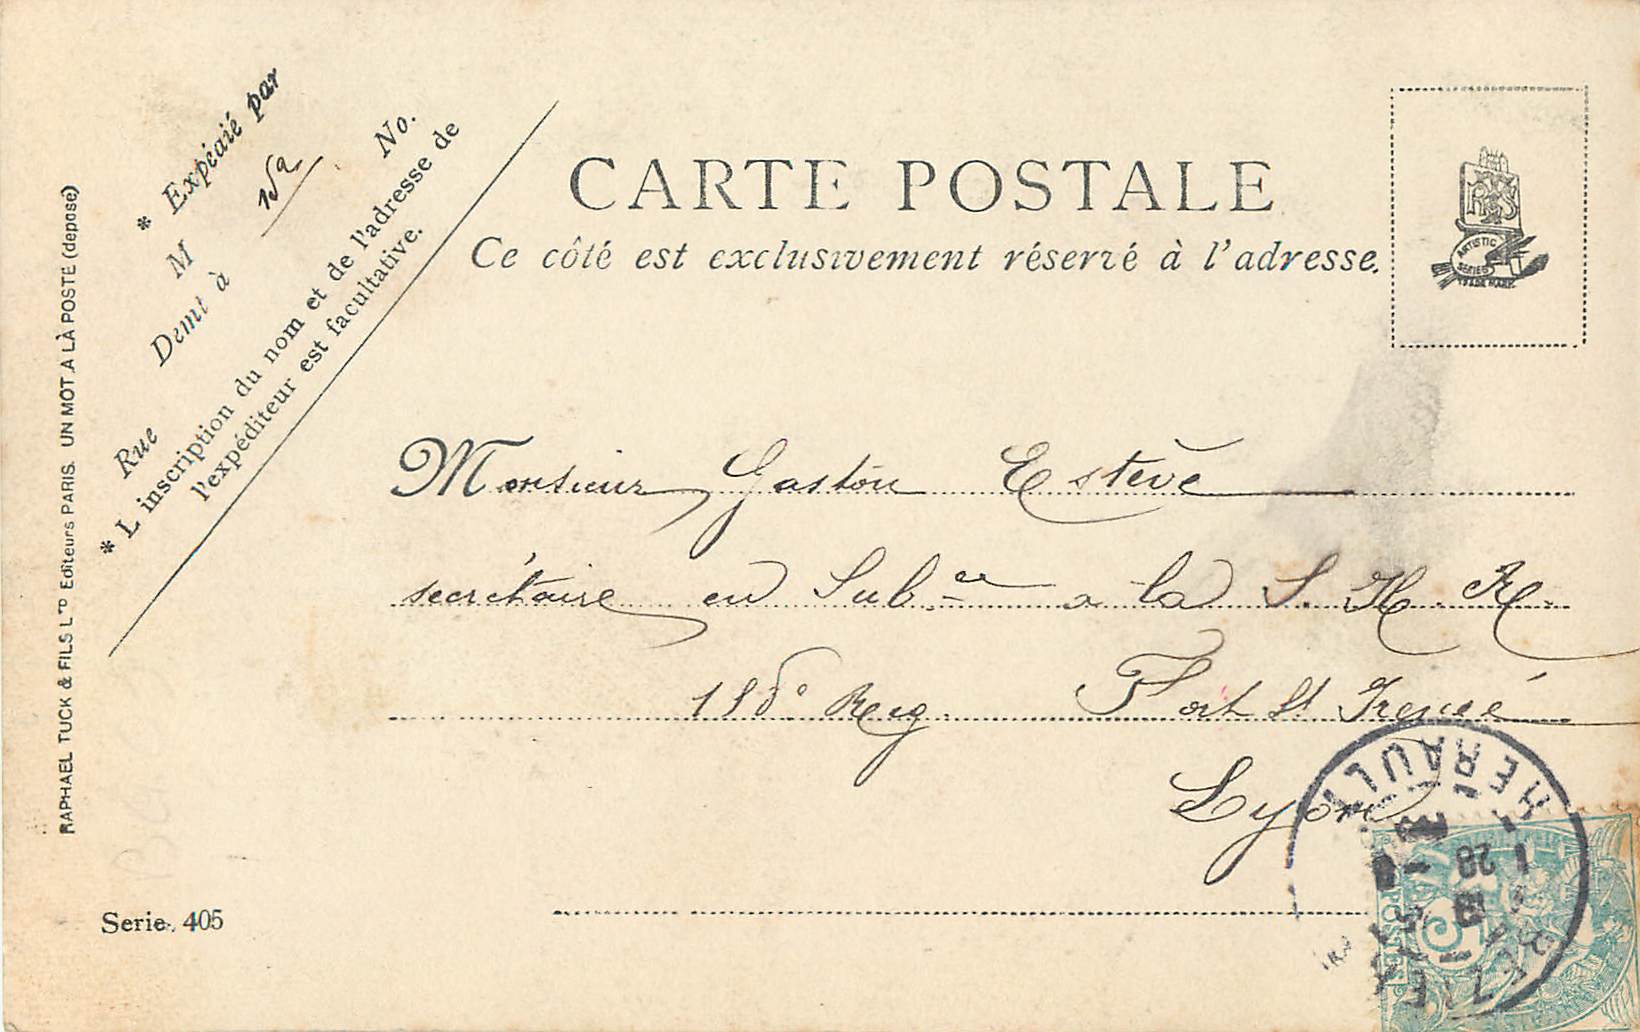 * Expédié par
M
No.
Demt à
Rue
* L inscription du nom et de l'adresse de
l'expéditeur est facultative.
CARTE POSTALE
Ce côté est exclusivement réservé à l'adresse.
ARTISTIC
SERIES
TRADE MARK.
Monsieur Gaston Estève
secrétaire en Sub.ce a la S. H. R.
158e Reg. Fort St Irénée
Lyon
HERAULT
28
5
RAPHAEL TUCK & FILS LTD Editeurs PARIS. UN MOT A LÀ POSTE (depose)
Serie. 405